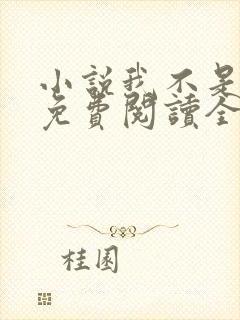 小説我不是
免費閱讀全
桂園